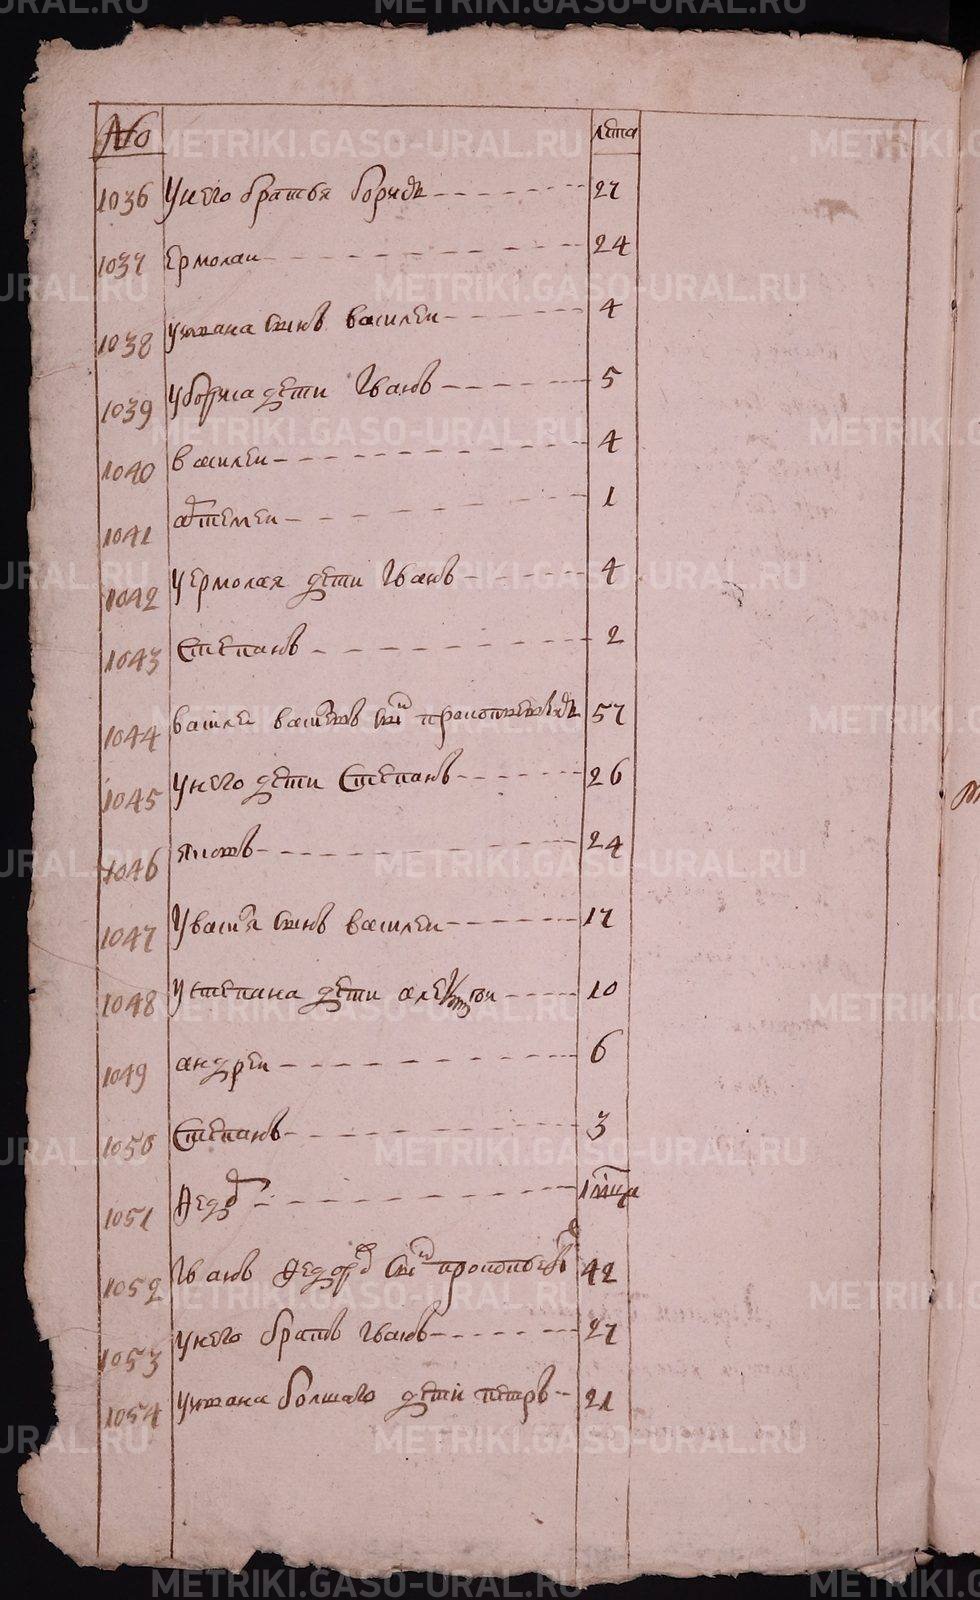 METRIKI.GASO-URAL.RU
№ лета
1036 У него братья борисъ 27
1037 Ермолаи 24
1038 У ивана снъ василеи 4
1039 У бориса дети Иванъ 5
1040 василеи 4
1041 артемеи 1
1042 У ермолая дети Иванъ 4
1043 Степанъ 2
1044 василеи снъ 57
1045 У него дети Степанъ 26
1046 яковъ 24
1047 У василя снъ василеи 17
1048 У степана дети алексеи 10
1049 андреи 6
1050 Степанъ 3
1051 Ѳедоръ 1 мцъ
1052 Иванъ Ѳедоровъ снъ 42
1053 У него братъ Иванъ 27
1054 У ивана болшаго дети петръ 21